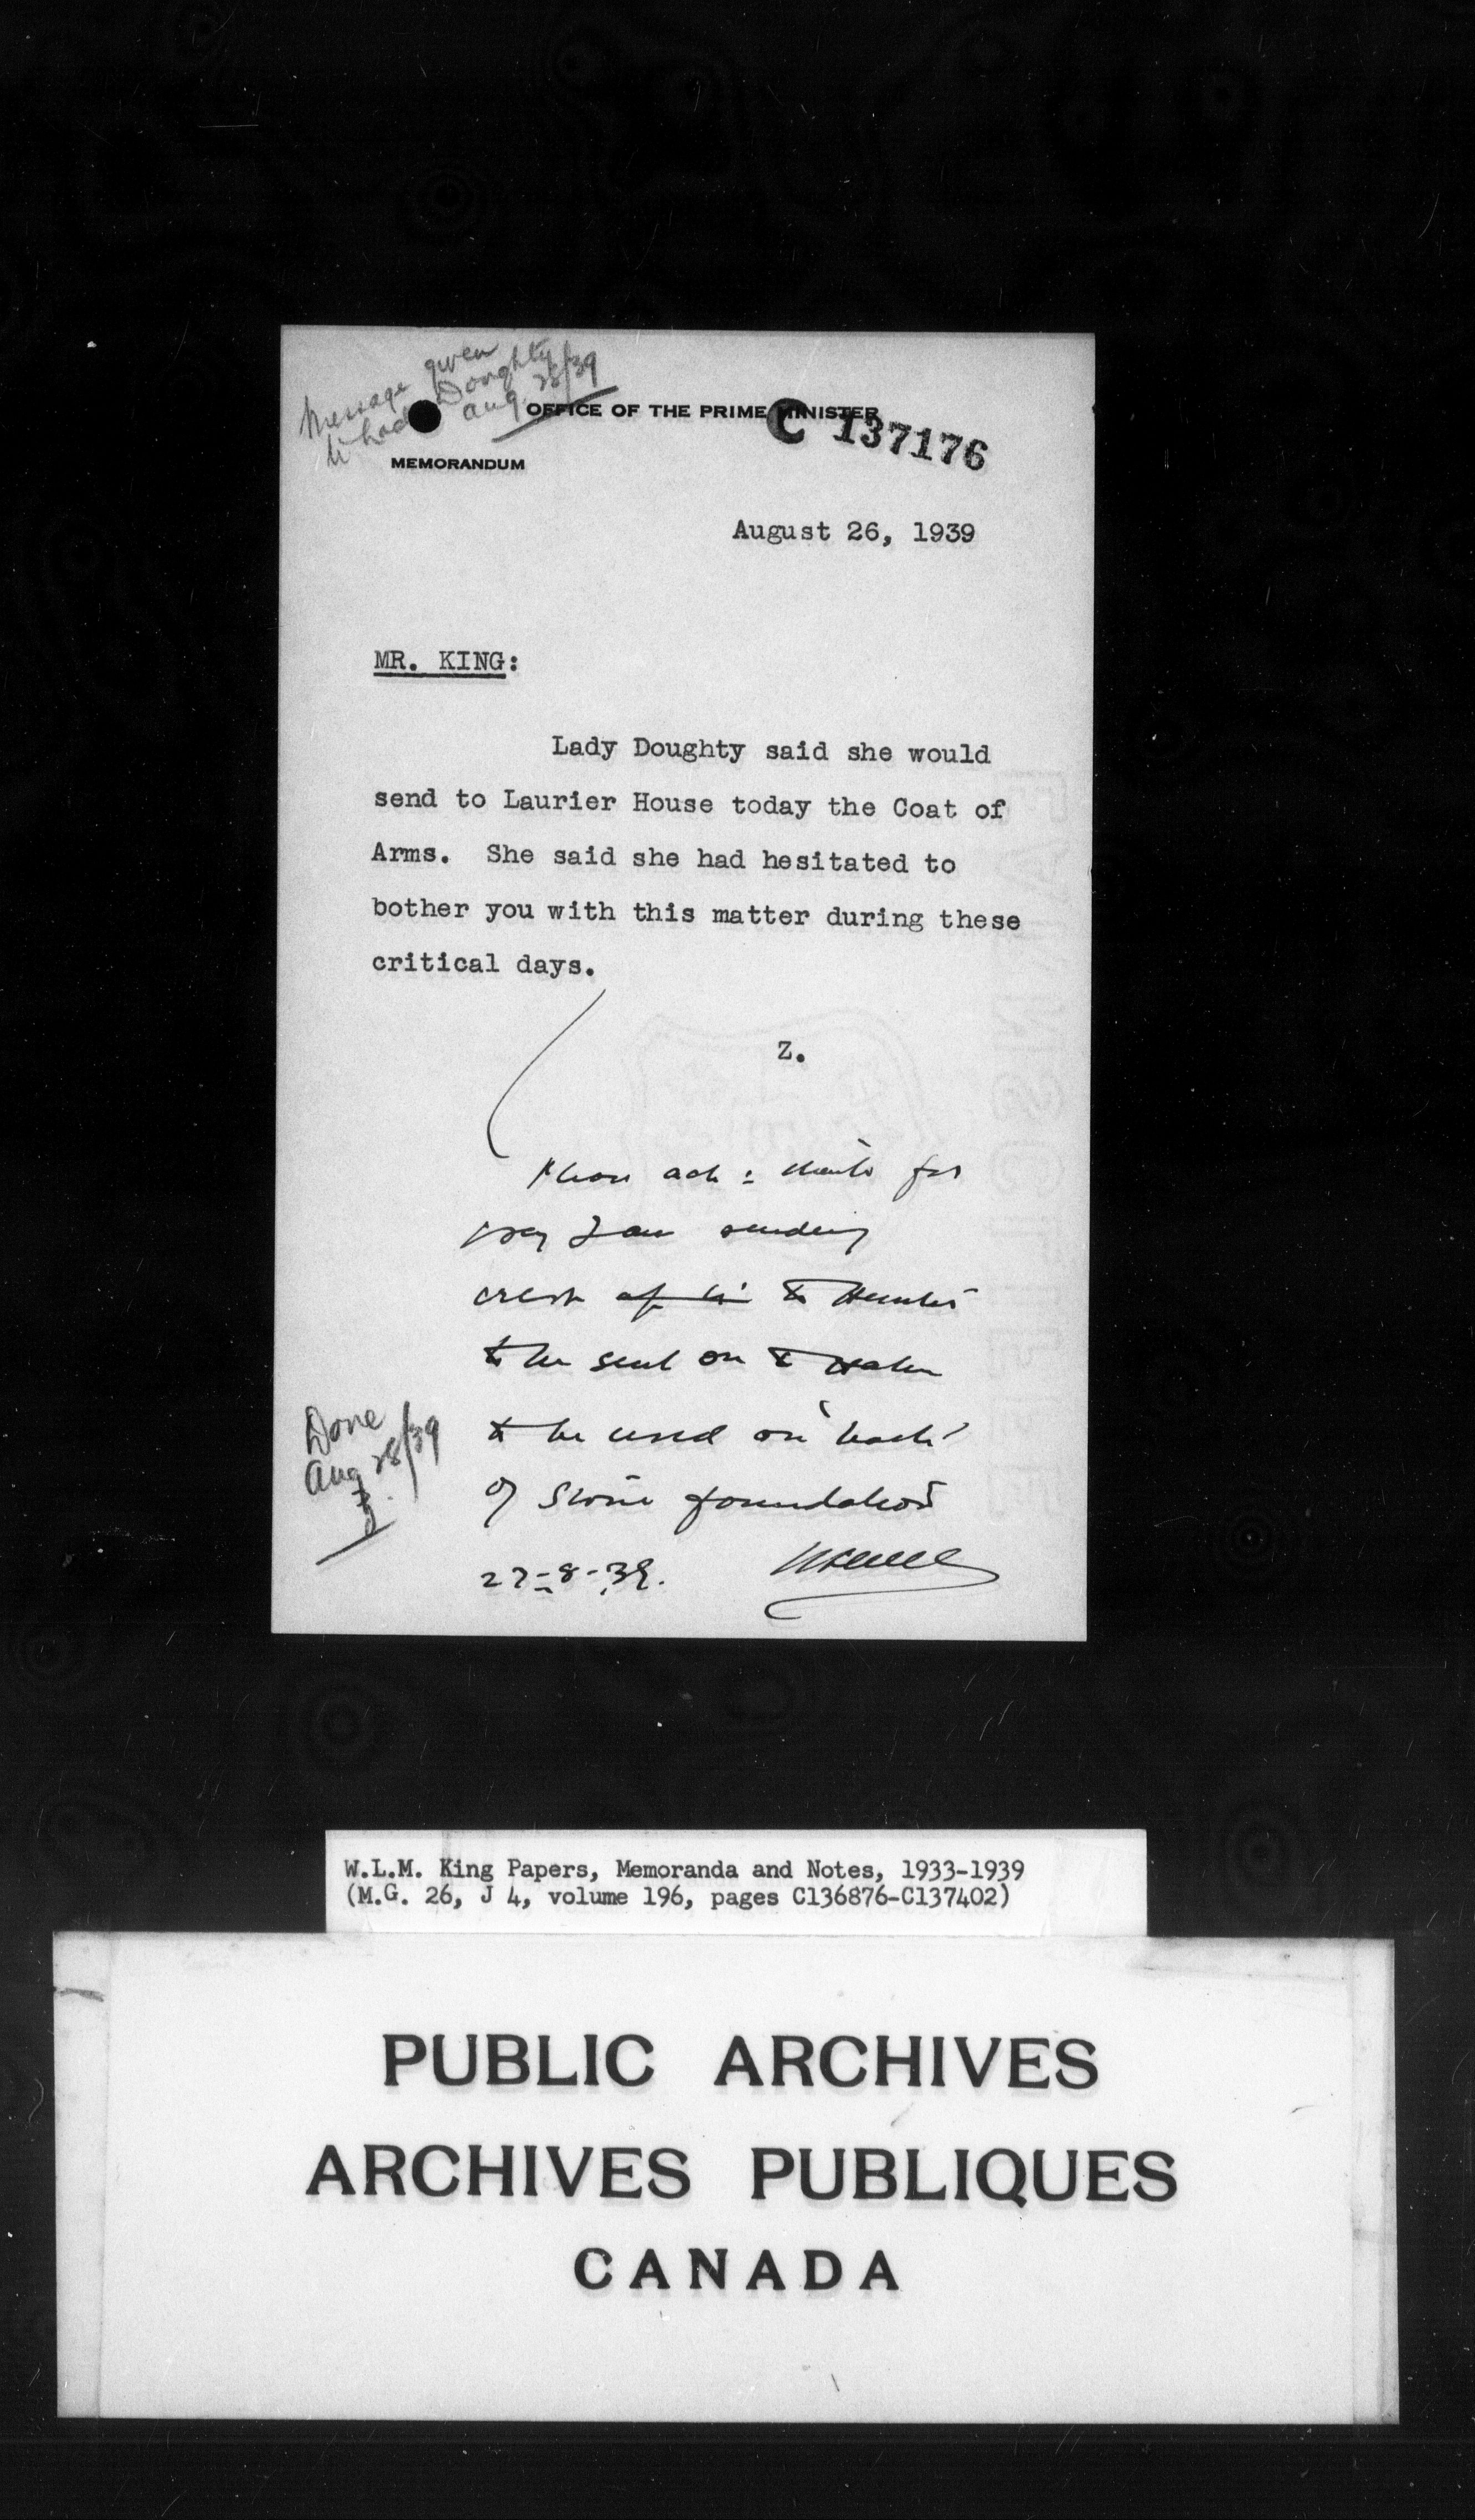 Message given
Doughty
Aug. 28/39
OFFICE OF THE PRIME MINISTER
C 137176
MEMORANDUM
August 26, 1939
MR. KING:
Lady Doughty said she would
send to Laurier House today the Coat of
Arms. She said she had hesitated to
bother you with this matter during these
critical days.
Z.
Please ack: thanks for
say I am sending
crest to Hunter
to be sent on to
to be used on back
of foundation
27-8-39.
Done
Aug 28/39
W.L.M. King Papers, Memoranda and Notes, 1933-1939
(M.G. 26, J 4, volume 196, pages C136876-C137402)
PUBLIC ARCHIVES
ARCHIVES PUBLIQUES
CANADA